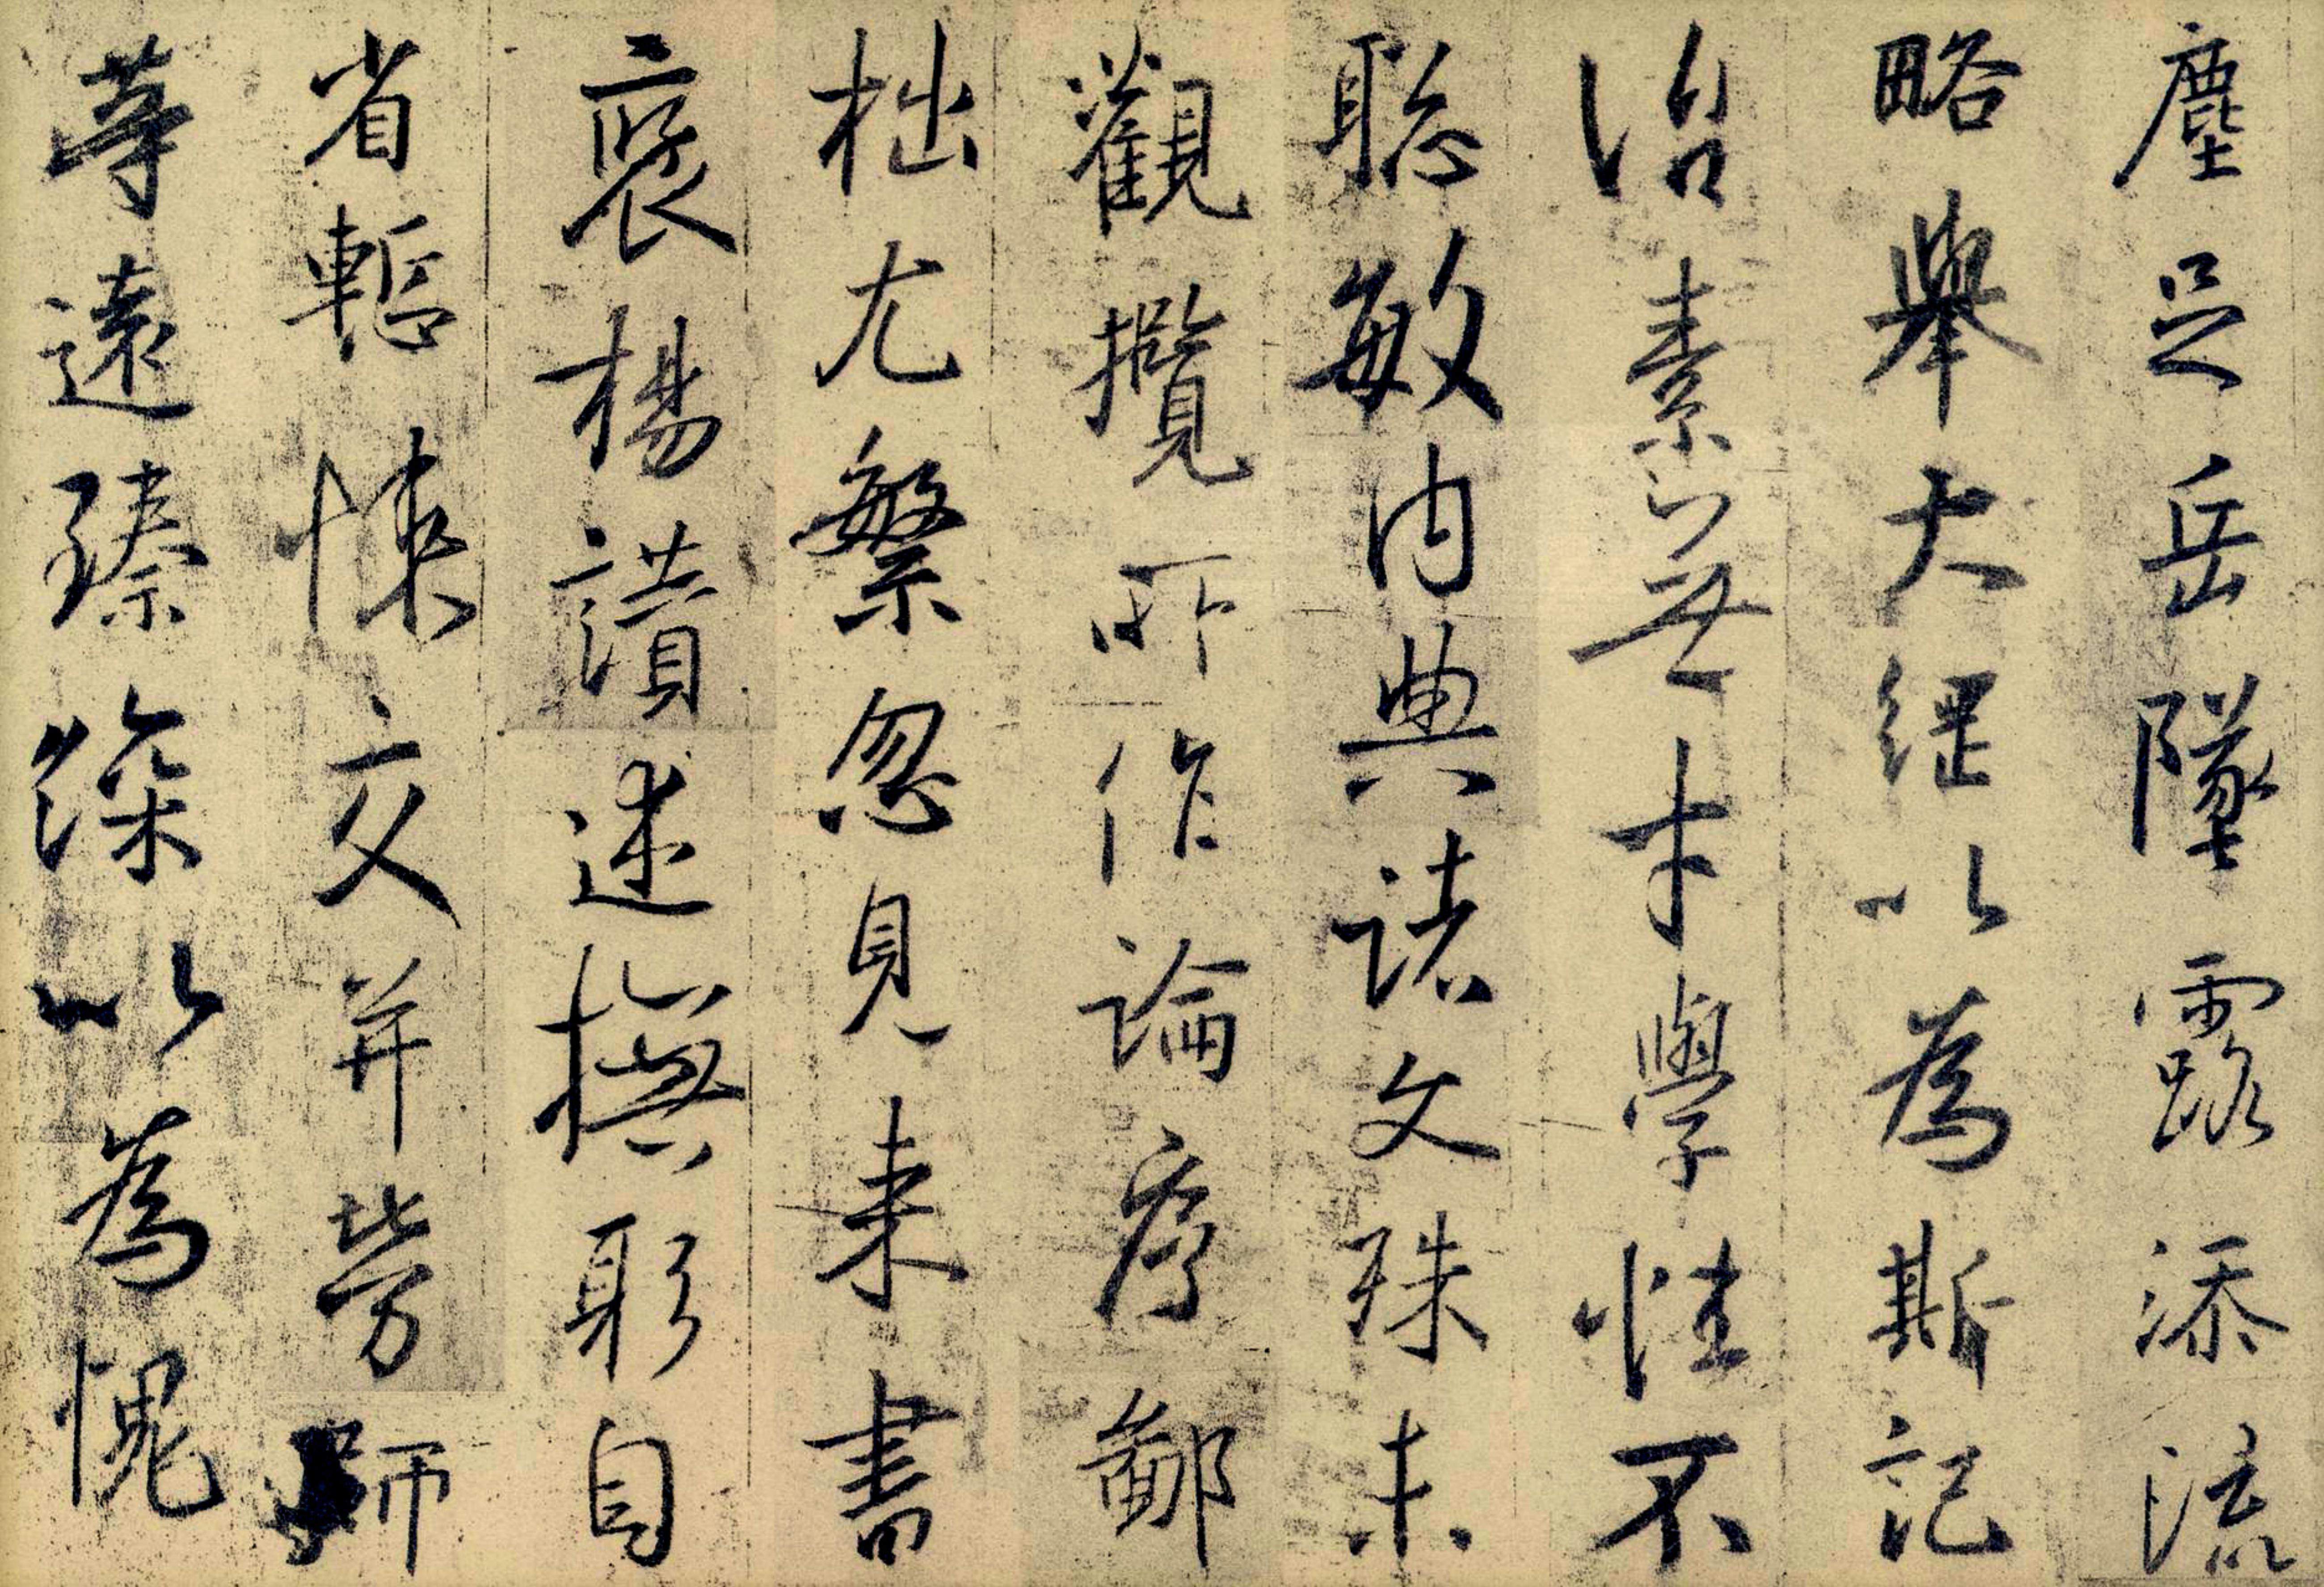 塵足岳墜露添流
略舉大綱以為斯記
治素無才學性不
聰敏内典諸文殊未
觀攬所作論序鄙
拙尤繁忽見来書
褒揚讃述撫躬自
省慙悚交并勞師
等遠臻深以為愧